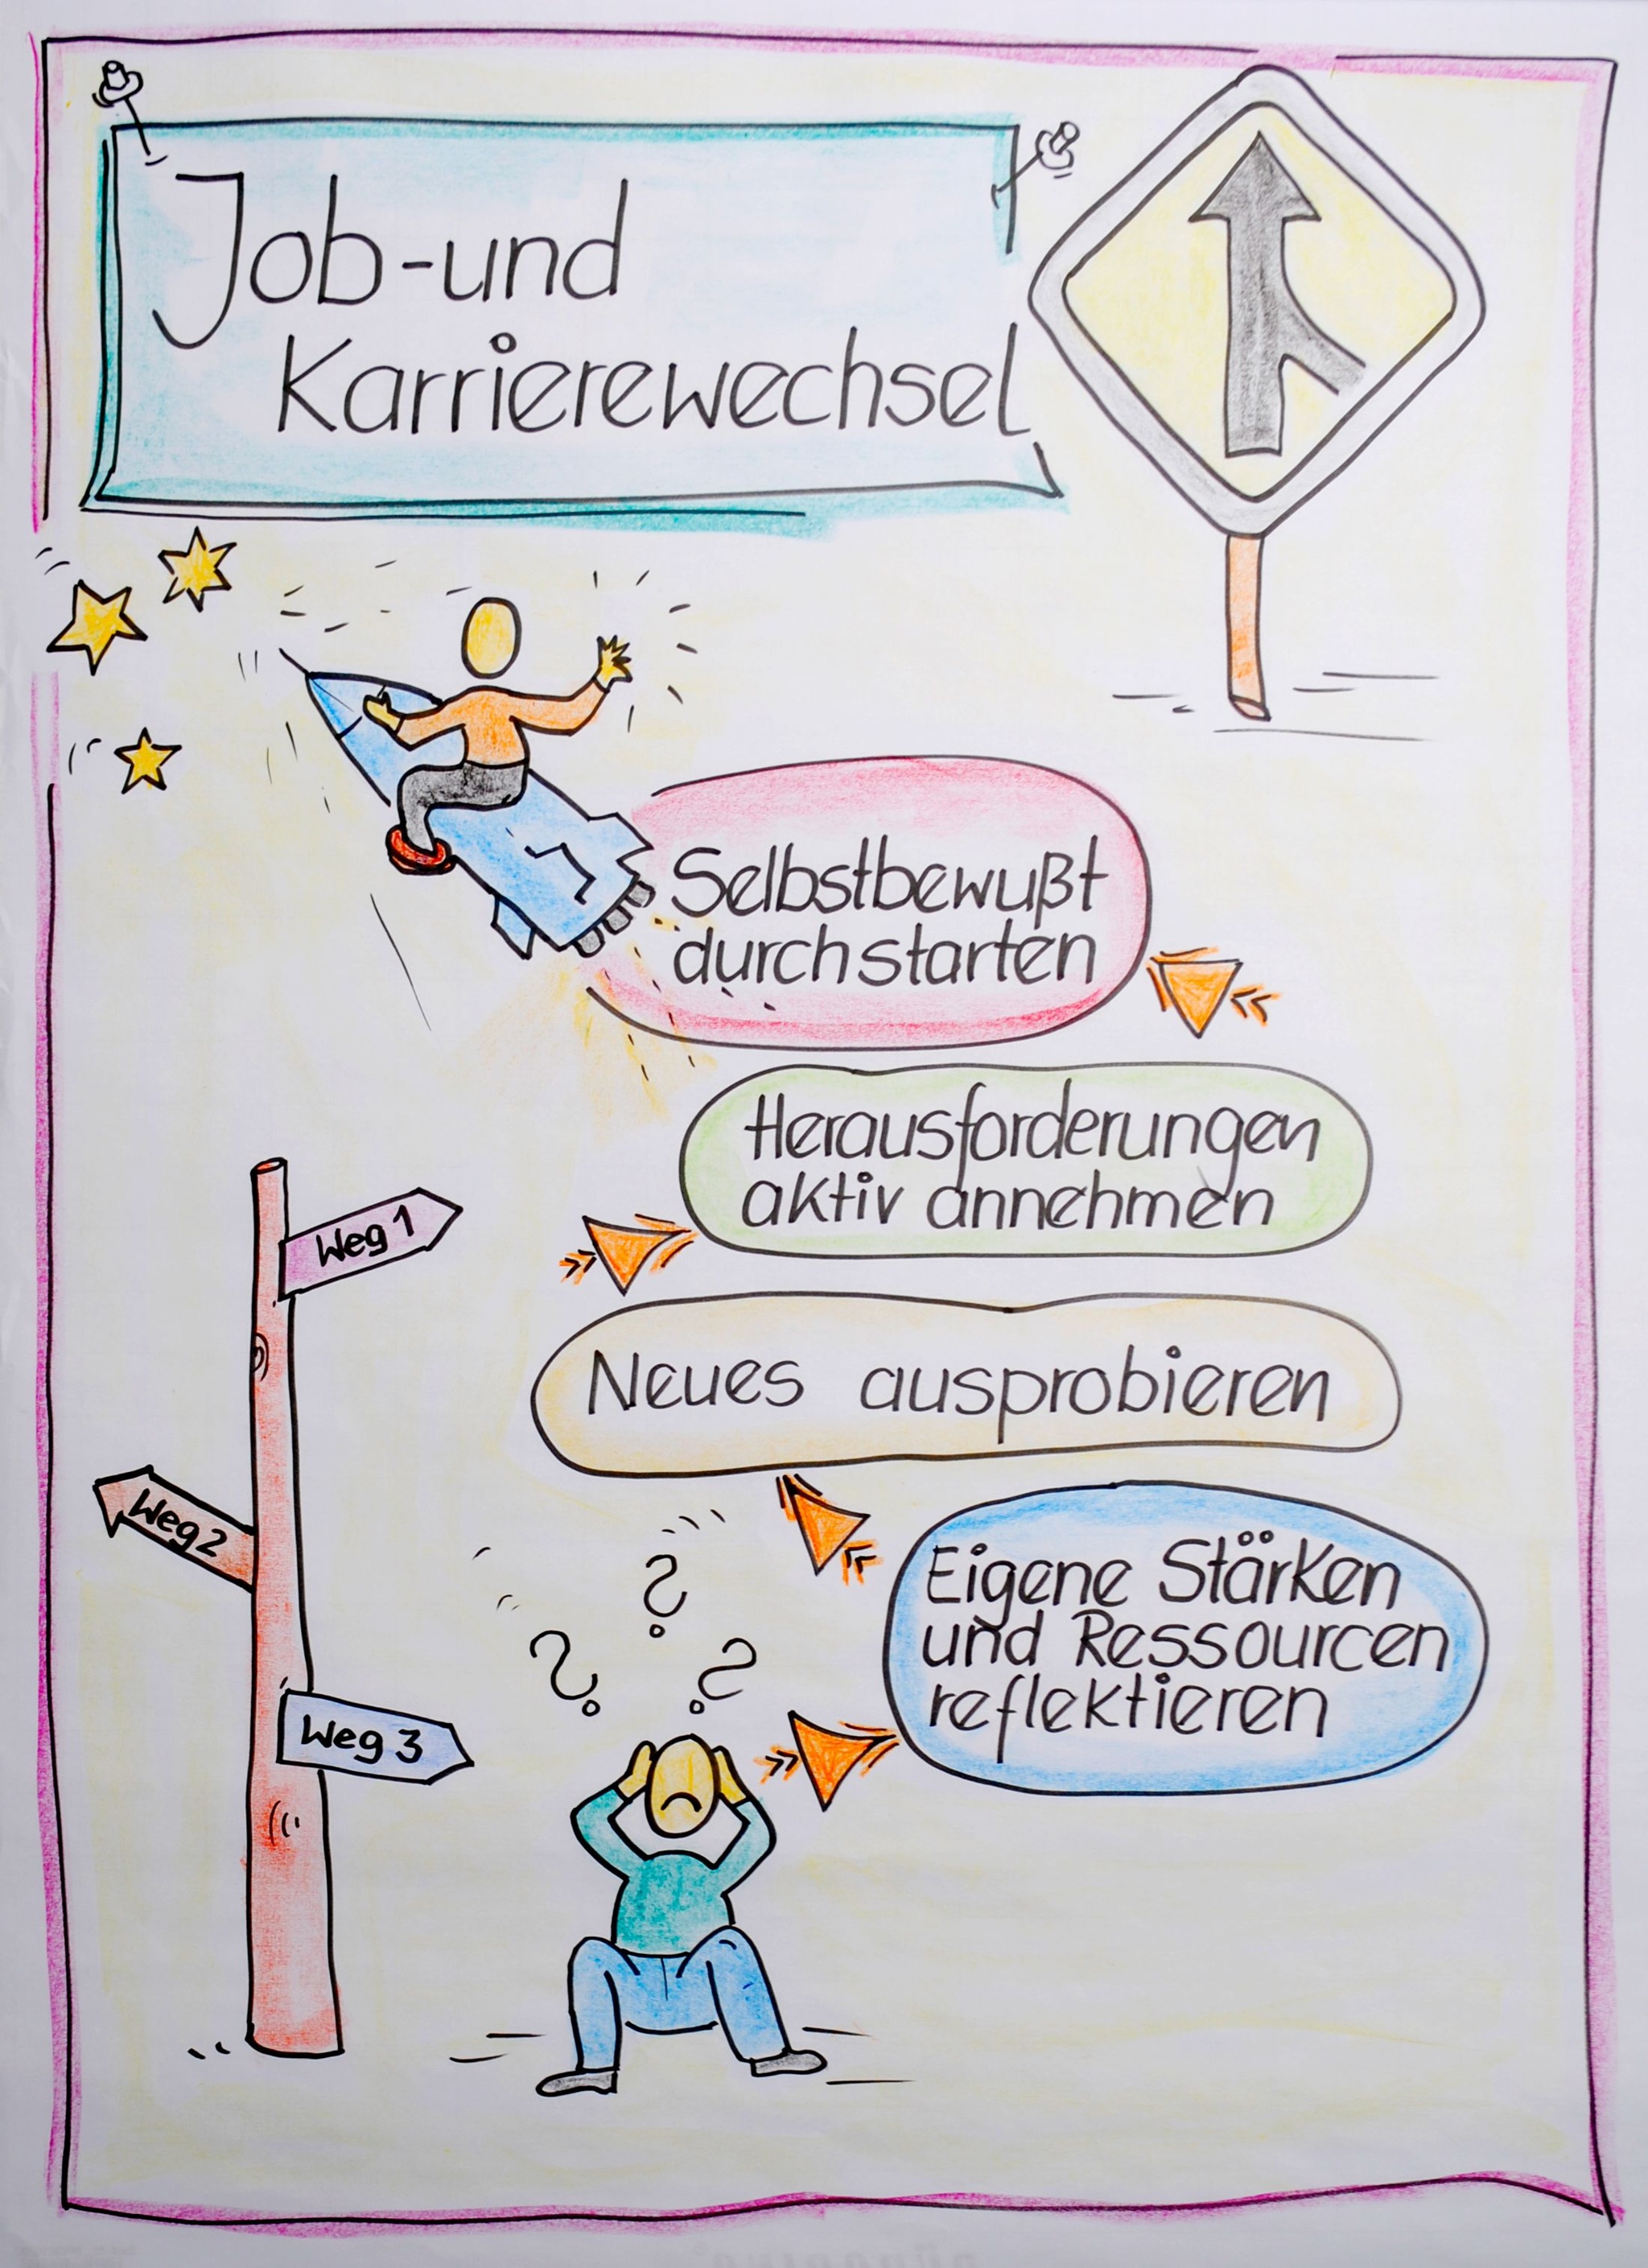 Job-und
Karrierewechsel
Selbstbewußt
durchstarten
Herausforderungen
aktiv annehmen
Weg 1
Neues ausprobieren
Weg 2
Eigene Stärken
und Ressourcen
reflektieren
Weg 3
? ? ?